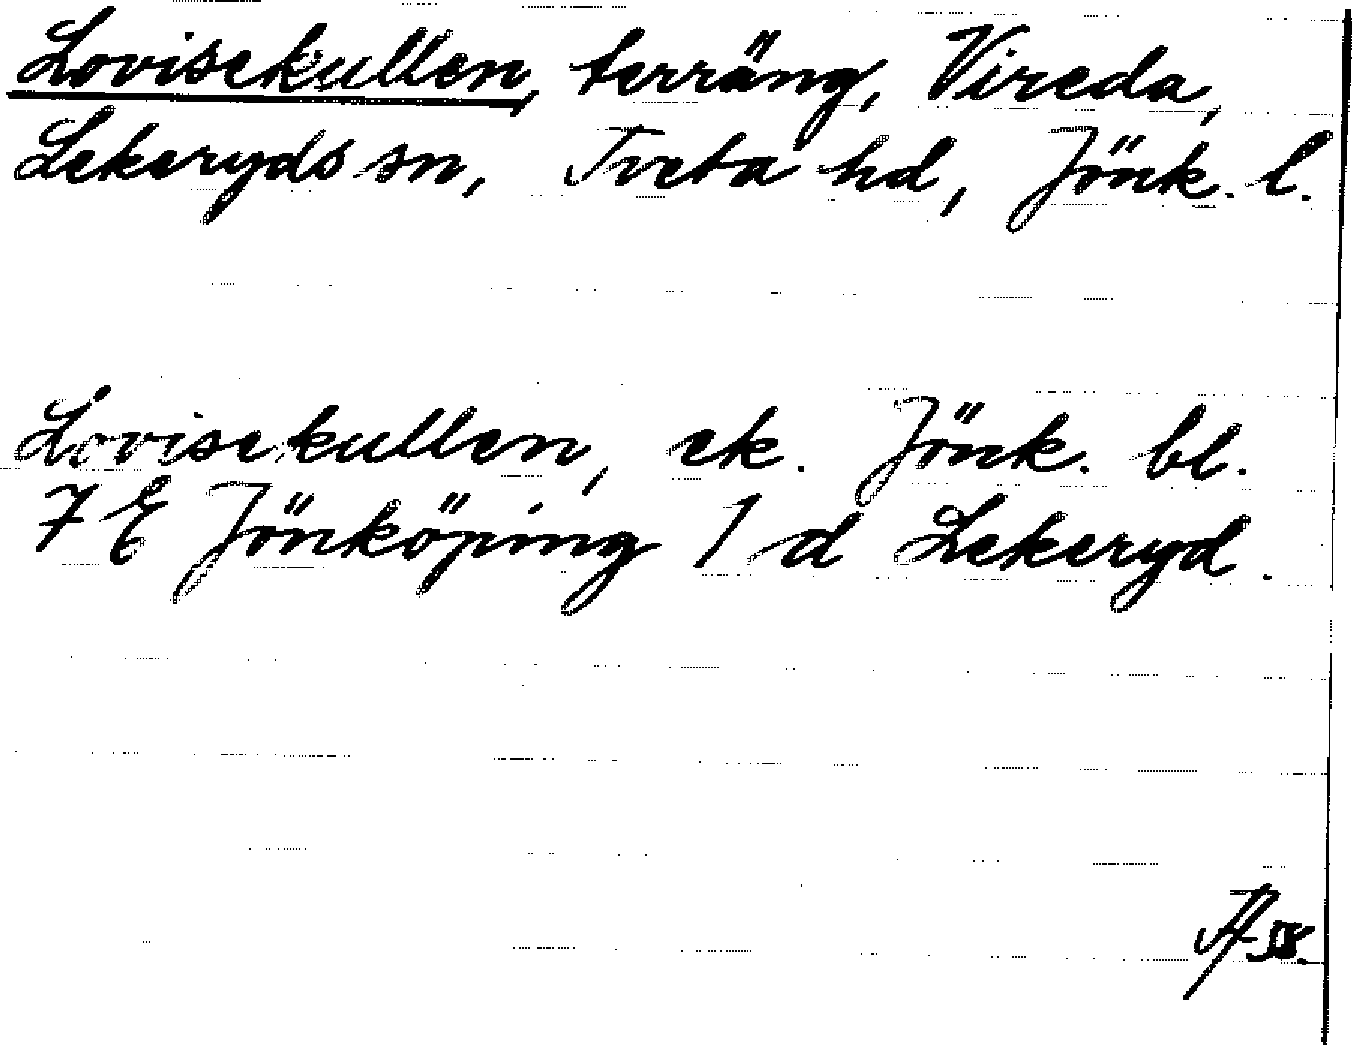 Lovisekullen, terräng, Vireda,
Lekeryds sn, Tveta hd, Jönk. l.
Lovisekullen, ek. Jönk. bl.
7 E Jönköping 1 d Lekeryd.